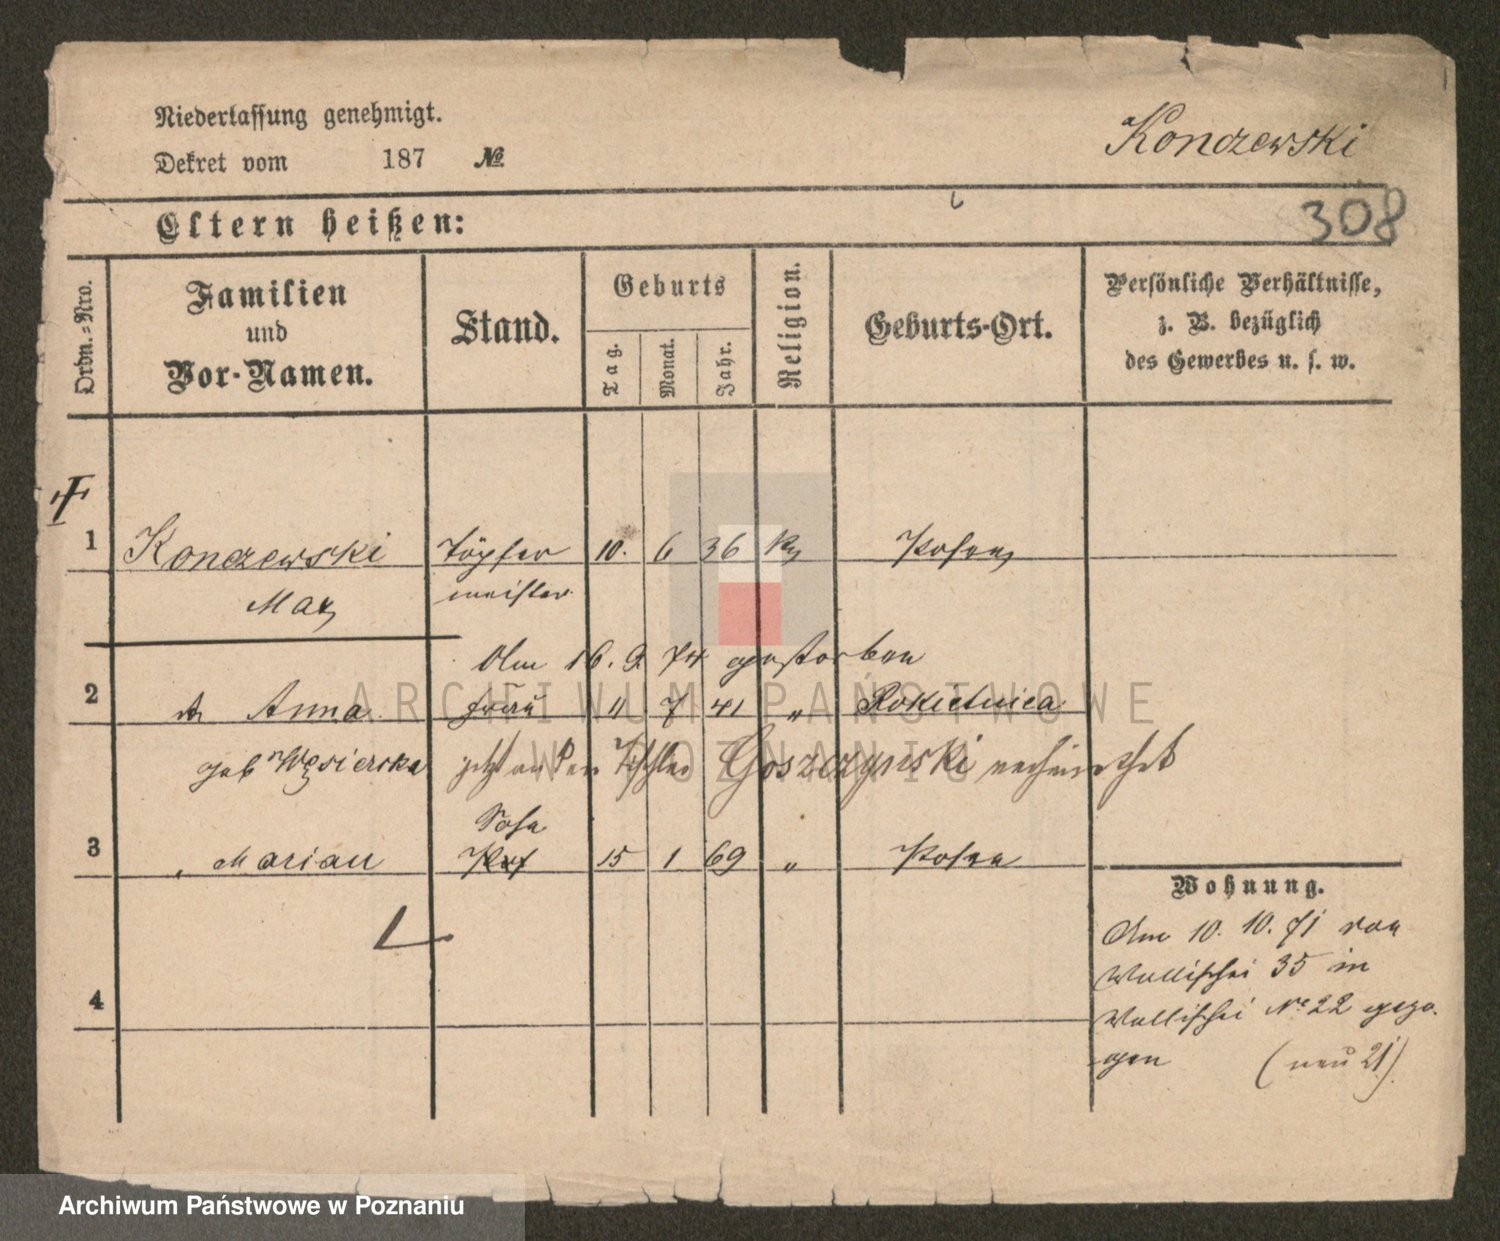 Niederlassung genehmigt.
Konczewski
Dekret vom 187 №
308
Eltern heißen:
Ordn.-Nro.
Familien
und
Vor-Namen.
Stand.
Geburts
Tag.
Monat.
Jahr.
Religion.
Geburts-Ort.
Persönliche Verhältnisse,
z. B. bezüglich
des Gewerbes u. s. w.
1 Konczewski Töpfer 10. 6 36 Posen
Max meister
Am 16. 9 74 gestorben
2 Anna Frau 11 7 41 " Rokietnica
geb Węsierska jetzt an den Tischler Goszczynski verheirathet
Sohn
3 " Marian 15 1 69 " Posen
Wohnung.
Am 10. 10. 71 von
Wallischei 35 in
Wallischei No 22 gezo-
gen (neu 21)
4
ARCHIWUM PAŃSTWOWE
W POZNANIU
Archiwum Państwowe w Poznaniu